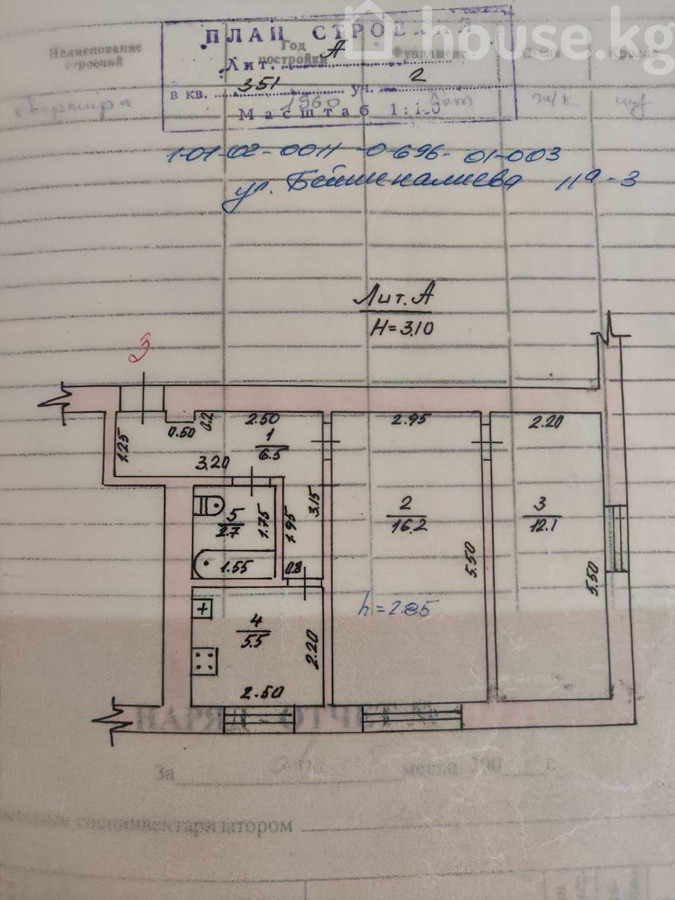 house.kg
Наименование строений
Год постройки
ПЛАН СТРОЕНИЯ
Лит. А
в кв. 351 уч. 2
Масштаб 1:
квартира 1960
1-01-02-0011-0696-01-003
ул. Бейшеналиева 11а-3
Лит. А
H=3,10
3
1.25
0.50
0.2
2.50
1
6.5
3.20
2.95
2.20
3.15
2
16.2
3
12.1
5
2.7
1.75
1.95
1.55
0.8
5.50
5.50
h=2.85
4
5.5
2.20
2.50
НАРЯД - ОТЧЕТ №
За месяц 200 г.